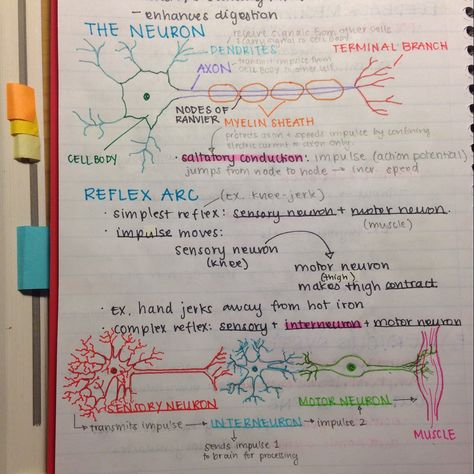 - enhances digestion
THE NEURON
receive signals from other cells
& carry signal to cell body
DENDRITES
TERMINAL BRANCH
AXON
transmit impulse from
cell body to other cells
NODES OF
RANVIER
MYELIN SHEATH
protects axon + speeds impulse by confining
electric current to axon only.
CELL BODY
• saltatory conduction: impulse (action potential)
jumps from node to node → incr. speed
REFLEX ARC
(Ex. knee-jerk)
• simplest reflex: sensory neuron + motor neuron.
(muscle)
• impulse moves:
sensory neuron
(knee)
motor neuron
(thigh)
makes thigh contract
• Ex. hand jerks away from hot iron
• complex reflex: sensory + interneuron + motor neuron
SENSORY NEURON
MOTOR NEURON
→ transmits impulse → INTERNEURON → impulse 2
MUSCLE
sends impulse 1
to brain for processing